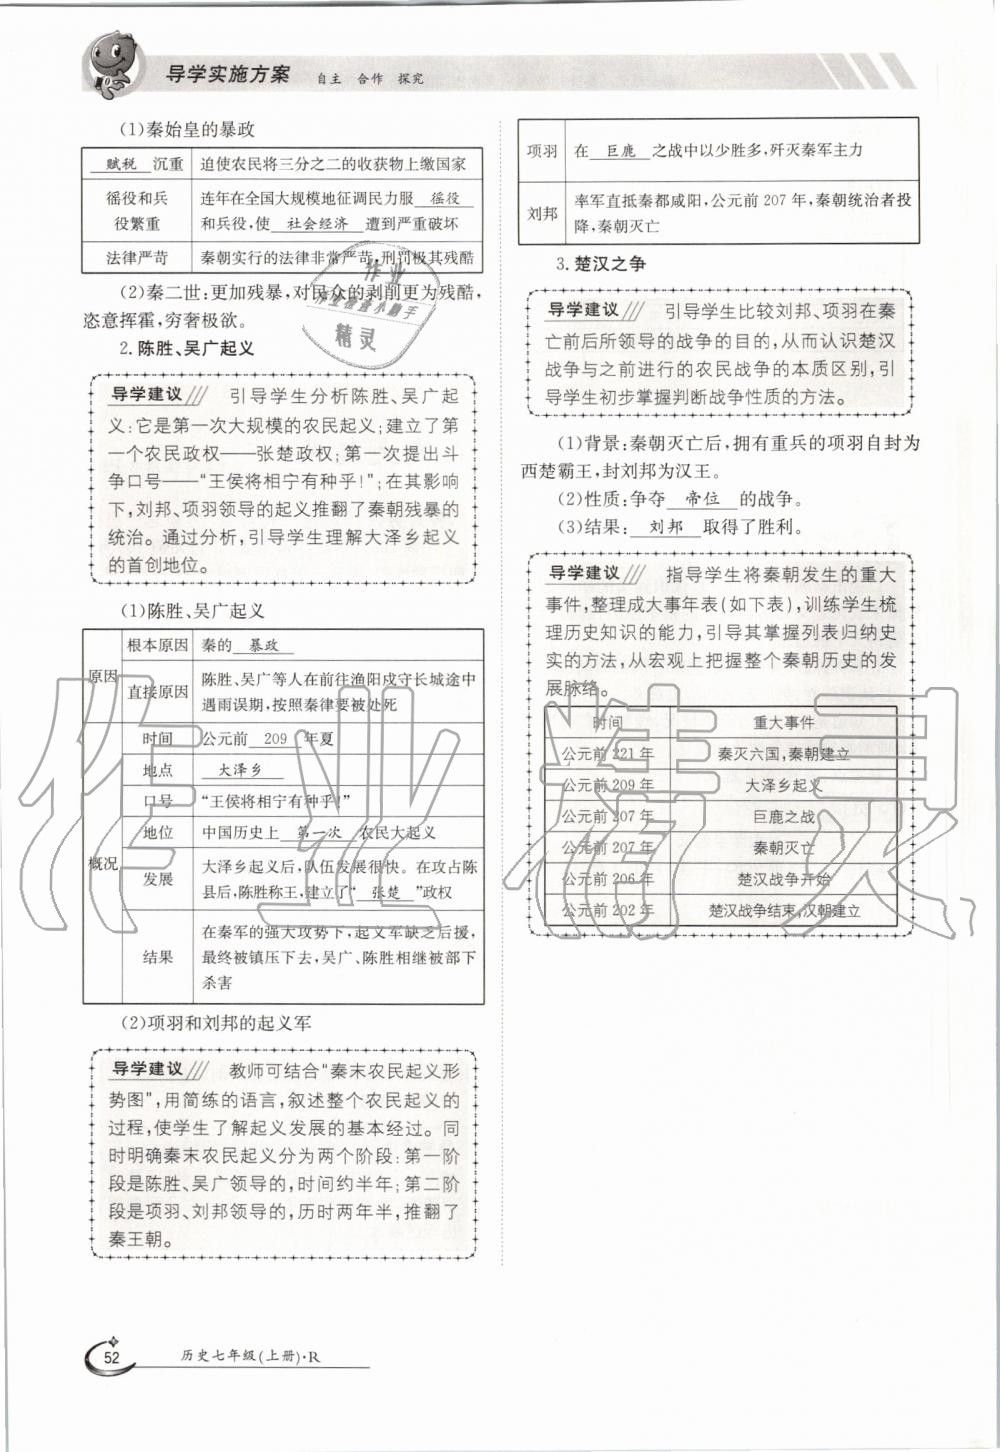 导学实施方案 自主 合作 探究
(1)秦始皇的暴政
赋税 沉重 迫使农民将三分之二的收获物上缴国家
徭役和兵役繁重 连年在全国大规模地征调民力服 徭役
和兵役,使 社会经济 遭到严重破坏
法律严苛 秦朝实行的法律非常严苛,刑罚极其残酷
(2)秦二世:更加残暴,对民众的剥削更为残酷,
恣意挥霍,穷奢极欲。
2. 陈胜、吴广起义
导学建议 引导学生分析陈胜、吴广起
义:它是第一次大规模的农民起义;建立了第
一个农民政权——张楚政权;第一次提出斗
争口号——“王侯将相宁有种乎!”;在其影响
下,刘邦、项羽领导的起义推翻了秦朝残暴的
统治。通过分析,引导学生理解大泽乡起义
的首创地位。
(1)陈胜、吴广起义
原因 根本原因 秦的 暴政
直接原因 陈胜、吴广等人在前往渔阳戍守长城途中
遇雨误期,按照秦律要被处死
概况 时间 公元前 209 年夏
地点 大泽乡
口号 “王侯将相宁有种乎!”
地位 中国历史上 第一次 农民大起义
发展 大泽乡起义后,队伍发展很快。在攻占陈
县后,陈胜称王,建立了“ 张楚 ”政权
结果 在秦军的强大攻势下,起义军缺乏后援,
最终被镇压下去,吴广、陈胜相继被部下
杀害
(2)项羽和刘邦的起义军
导学建议 教师可结合“秦末农民起义形
势图”,用简练的语言,叙述整个农民起义的
过程,使学生了解起义发展的基本经过。同
时明确秦末农民起义分为两个阶段:第一阶
段是陈胜、吴广领导的,时间约半年;第二阶
段是项羽、刘邦领导的,历时两年半,推翻了
秦王朝。
项羽 在 巨鹿 之战中以少胜多,歼灭秦军主力
刘邦 率军直抵秦都咸阳,公元前 207 年,秦朝统治者投
降,秦朝灭亡
3. 楚汉之争
导学建议 引导学生比较刘邦、项羽在秦
亡前后所领导的战争的目的,从而认识楚汉
战争与之前进行的农民战争的本质区别,引
导学生初步掌握判断战争性质的方法。
(1)背景:秦朝灭亡后,拥有重兵的项羽自封为
西楚霸王,封刘邦为汉王。
(2)性质:争夺 帝位 的战争。
(3)结果: 刘邦 取得了胜利。
导学建议 指导学生将秦朝发生的重大
事件,整理成大事年表(如下表),训练学生梳
理历史知识的能力,引导其掌握列表归纳史
实的方法,从宏观上把握整个秦朝历史的发
展脉络。
时间 重大事件
公元前 221 年 秦灭六国,秦朝建立
公元前 209 年 大泽乡起义
公元前 207 年 巨鹿之战
公元前 207 年 秦朝灭亡
公元前 206 年 楚汉战争开始
公元前 202 年 楚汉战争结束,汉朝建立
作业精灵
作业
作业检查小助手
精灵
52 历史七年级(上册)·R